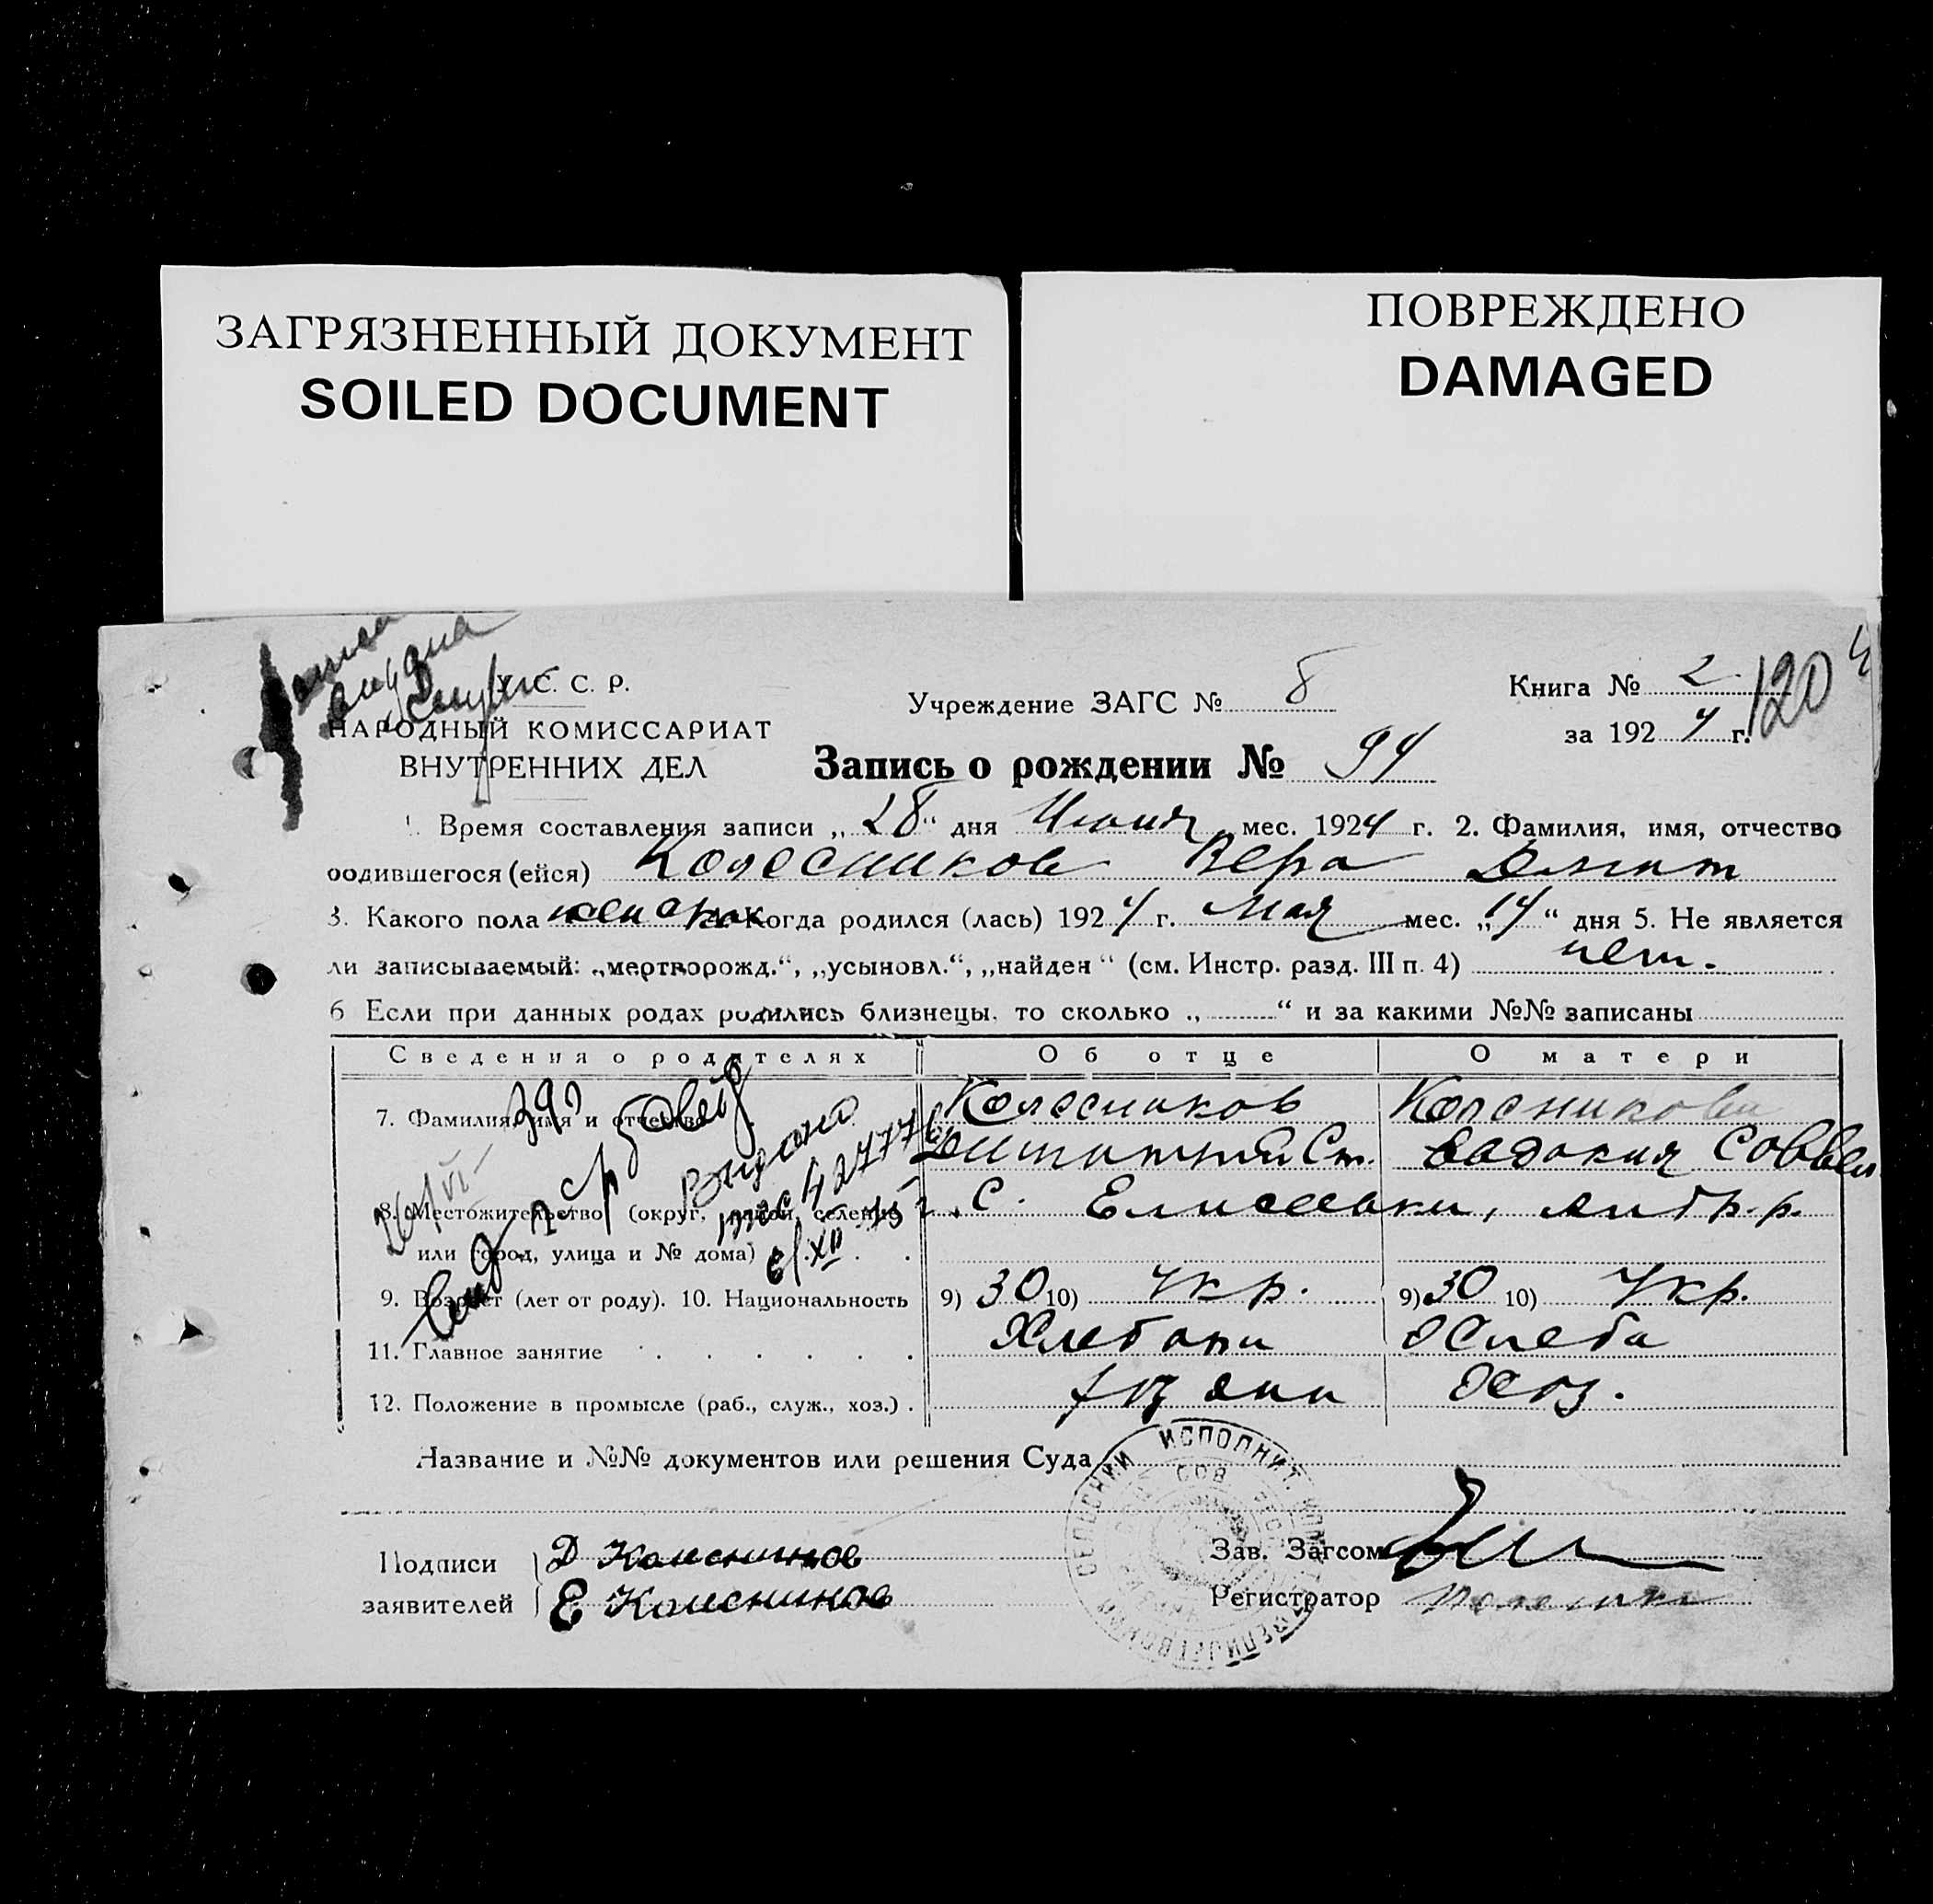 ЗАГРЯЗНЕННЫЙ ДОКУМЕНТ
SOILED DOCUMENT
ПОВРЕЖДЕНО
DAMAGED
У. С. С. Р.
НАРОДНЫЙ КОМИССАРИАТ
ВНУТРЕННИХ ДЕЛ
Учреждение ЗАГС № 8
Книга № 2
за 1924 г.
120
Запись о рождении № 94
1. Время составления записи „28“ дня Июня мес. 1924 г. 2. Фамилия, имя, отчество
родившегося (ейся) Колесников Вера Дмит
3. Какого пола женска 4. Когда родился (лась) 1924 г. Мая мес. „14“ дня 5. Не является
ли записываемый: „мертворожд.“, „усыновл.“, „найден“ (см. Инстр. разд. III п. 4) нет.
6 Если при данных родах родились близнецы, то сколько „ “ и за какими №№ записаны
Сведения о родителях Об отце О матери
7. Фамилия, имя и отчество Колесников Колсникова
Ст. Евдокия Саввы
8. Местожительство (округ, район, селение С. Елисеевки,
или город, улица и № дома)
Выдано
9. Возраст (лет от роду). 10. Национальность 9) 30 10) Укр. 9) 30 10) Укр.
11. Главное занятие Хлебопа Хлеба
12. Положение в промысле (раб., служ., хоз.) Хоз.
Название и №№ документов или решения Суда
Подписи Д Колесников
заявителей Е Колесников
Зав. Загсом
Регистратор
СЕЛЬСКИЙ ИСПОЛНИТ